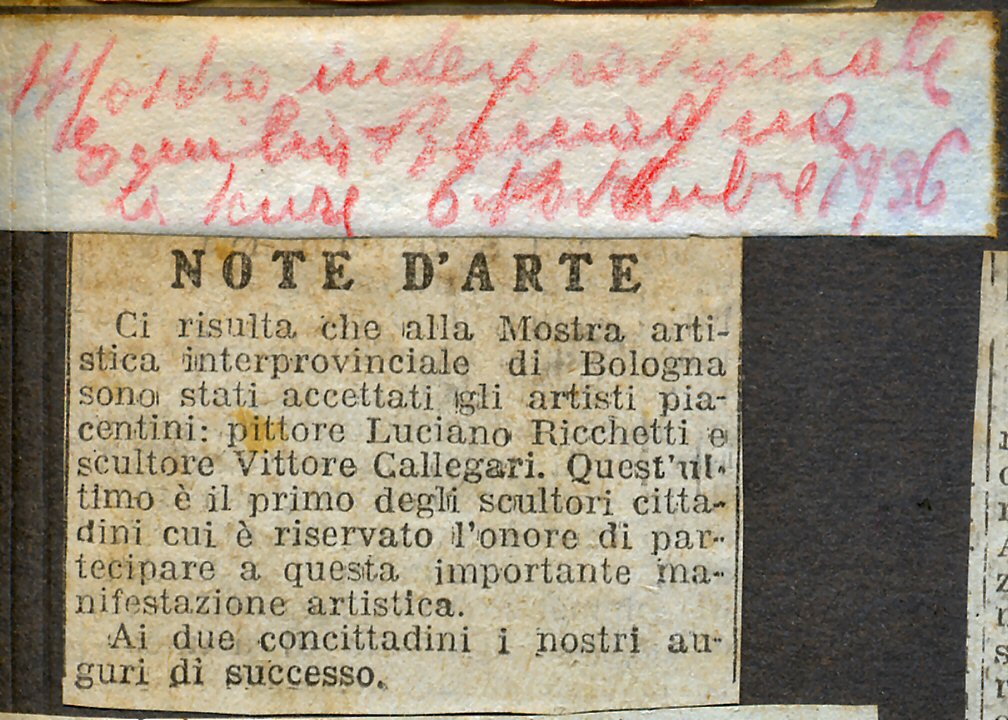 Mostra interprovinciale
Emilia Romagna
La Scure 6 Settembre 1936
NOTE D'ARTE
Ci risulta che alla Mostra arti-
stica interprovinciale di Bologna
sono stati accettati gli artisti pia-
centini: pittore Luciano Ricchetti e
scultore Vittore Callegari. Quest'ul-
timo è il primo degli scultori citta-
dini cui è riservato l'onore di par-
tecipare a questa importante ma-
nifestazione artistica.
Ai due concittadini i nostri au-
guri di successo.